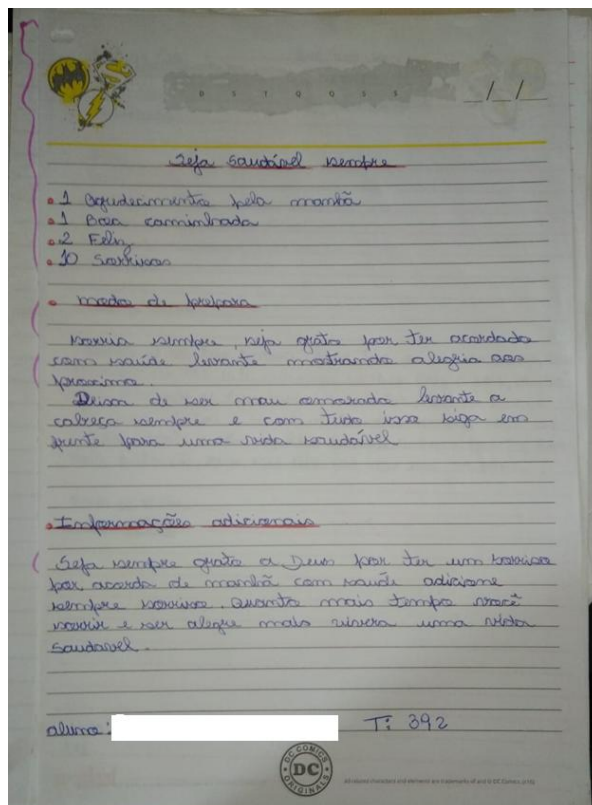 D S T Q Q S S
__/__/__
Seja saudável sempre
• 1 Agradecimento pela manhã
• 1 Boa caminhada
• 2 Feliz
• 10 Sorrisos
• modo de preparo
sorria sempre, seja grato por ter acordado
com saúde levante mostrando alegria aos
proximo.
Deixa de ser mau amorado levante a
cabeça sempre e com tudo isso siga em
frente para uma vida saudável
• Informações adicionais
Seja sempre grato a Deus por ter um sorriso
por acorda de manhã com saúde adicione
sempre sorriso. Quanto mais tempo você
sorrir e ser alegre mais vivera uma vida
saudavel.
aluno: T: 392
DC COMICS
DC
ORIGINALS
All related characters and elements are trademarks of and © DC Comics.